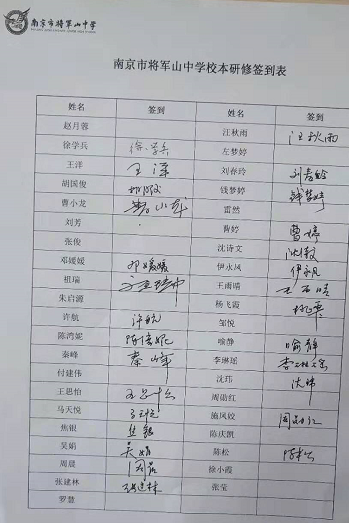 南京市将军山中学
南京市将军山中学校本研修签到表
姓名 签到 姓名 签到
赵月蓉 汪秋雨 汪秋雨
徐学兵 徐学兵 左梦婷
王洋 王洋 刘春玲 刘春玲
胡国俊 胡国俊 钱梦婷 钱梦婷
曹小龙 曹小龙 雷然
刘芳 曹婷 曹婷
张俊 沈诗文
邓媛媛 邓媛媛 伊永凤
祖瑞 王雨晴
朱启源 杨飞霞
许航 许航 邹悦
陈湾妮 喻静 喻静
秦峰 秦峰 李琳瑶
付建伟 沈玮 沈玮
王思怡 周勋红
马天悦 施凤姣
焦银 焦银 陈庆凯
吴娟 吴娟 陈松 陈松
周晨 周晨 徐小霞
张建林 张建林 张莹
罗慧